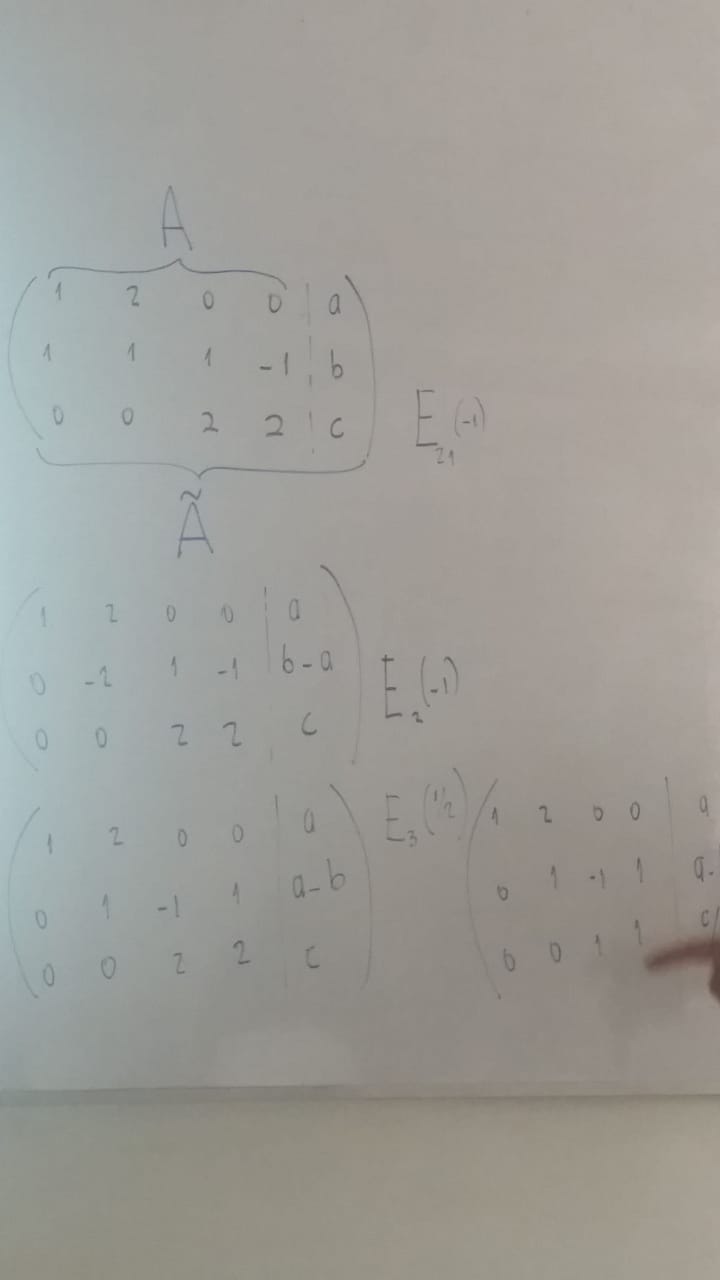 A
1 2 0 0 | a
1 1 1 -1 | b
0 0 2 2 | c
E₂₁(-1)
Ã
1 2 0 0 | a
0 -1 1 -1 | b-a
0 0 2 2 | c
E₂(-1)
1 2 0 0 | a
0 1 -1 1 | a-b
0 0 2 2 | c
E₃(1/2)
1 2 0 0 | a
0 1 -1 1 | a-
0 0 1 1 c/